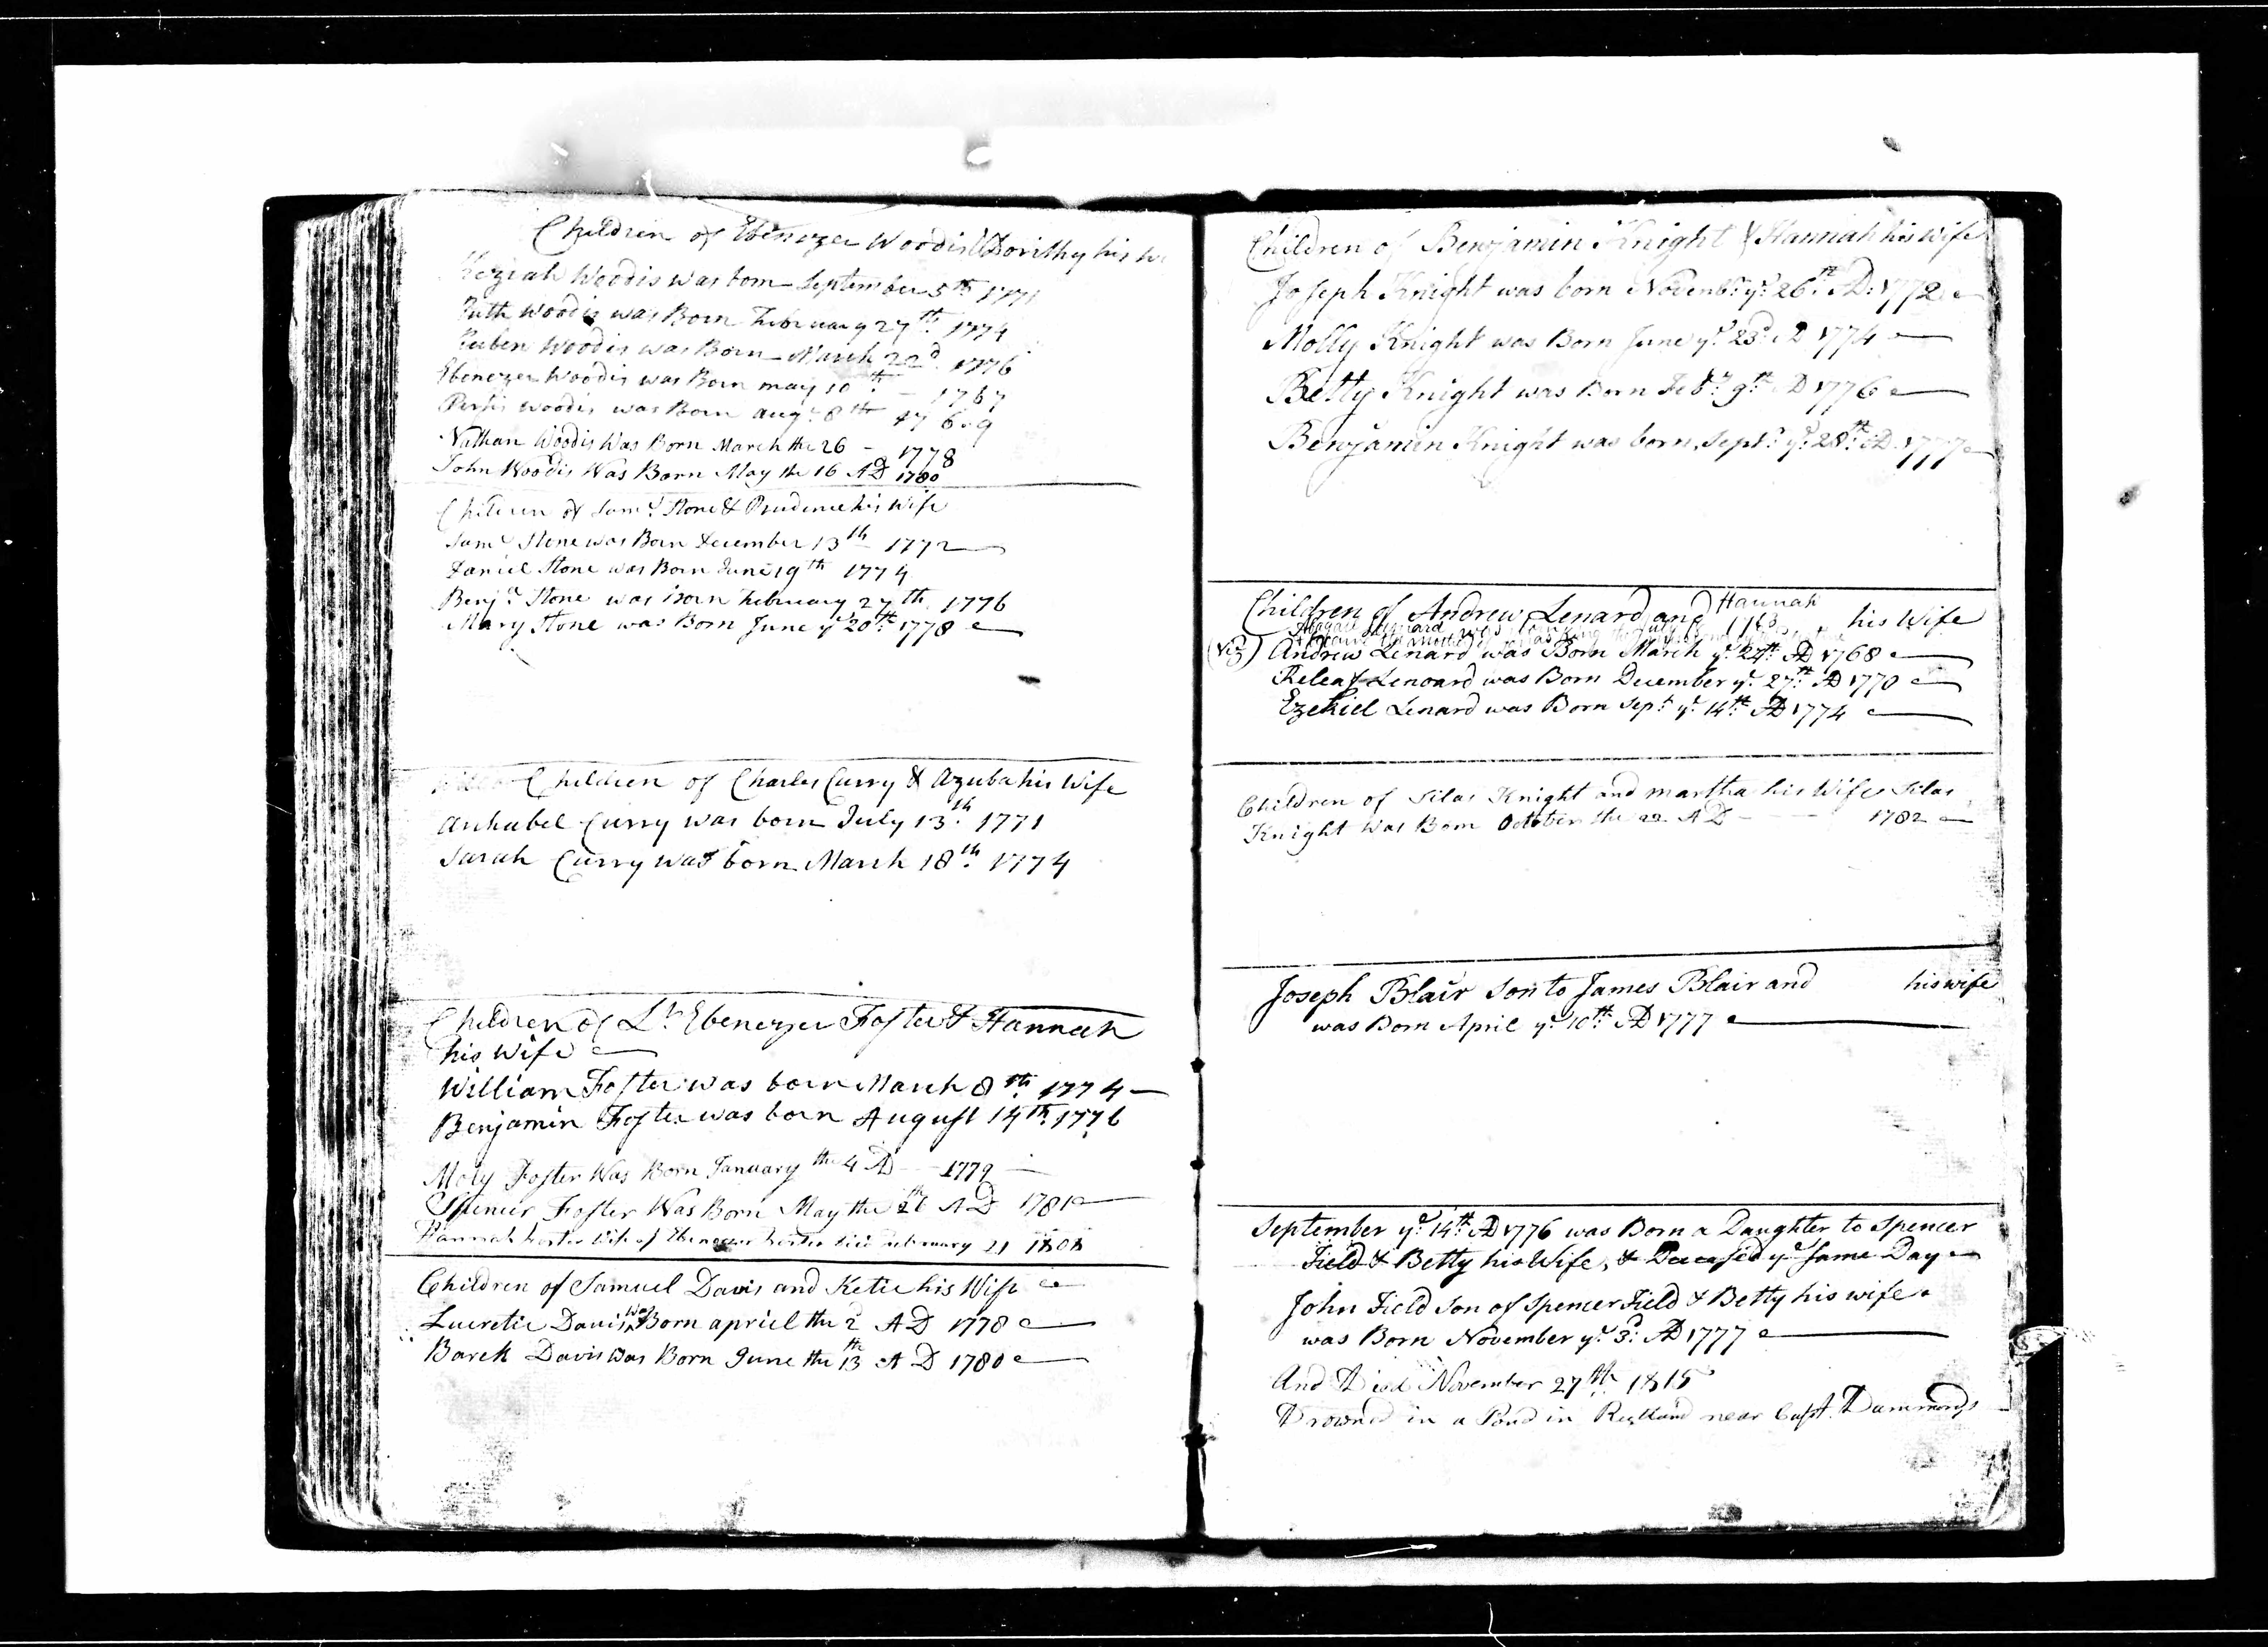 Children of Ebenezer Woodis & Dorithy his
Keziah Woodis was born September 5th 1771
Ruth Woodis was Born February 27th 1774
Reuben Woodis was Born March 22d 1776
Ebenezer Woodis was Born may 10th - 1767
Persis Woodis was Born augt 8th 1769
Nathan Woodis Was Born March the 26 - 1778
John Woodis Was Born May the 16 AD 1780
Children of Saml Stone & Prudence his Wife
Saml Stone was Born December 13th 1772
Daniel Stone was Born June 19th 1774
Benjn Stone was Born February 27th 1776
Mary Stone was Born June ye 20th 1778
Children of Charles Curry & Azuba his Wife
Curry was born July 13th 1771
Sarah Curry was born March 18th 1774
Children of Lt Ebenezer Foster & Hannah
his Wife
William Foster was born March 8th 1774
Benjamin Foster was born August 14th 1776
Moly Foster Was Born January the 4 AD 1779
Spencer Foster Was Born May the 26th AD 1781
Hannah Foster Wife of Ebenezer Foster Died February 21 1808
Children of Samuel Davis and Ketie his Wife
Lucretie Davis Was Born apriel the 2 AD 1778
Barek Davis Was Born June the 13th AD 1780
Children of Benjamin Knight & Hannah his Wife
Joseph Knight was born Novembr ye 26th AD: 1772
Molly Knight was Born June ye 23d AD 1774
Betty Knight was Born Febr 9th AD 1776
Benjamin Knight was born Sept ye 28th AD 1777
Children of Andrew Lenard and Hannah his Wife
1763
(Viz) Andrew Lenard was Born March ye 24th AD 1768
Releaf Lenoard was Born December ye 27th AD 1770
Ezekiel Lenard was Born Sept ye 14th AD 1774
Children of Silas Knight and martha his Wife Silas
Knight Was Born October the 22 AD - - - 1782
Joseph Blair Son to James Blair and his wife
was Born April ye 10th AD 1777
September ye 14th AD 1776 was Born a Daughter to Spencer
Field & Betty his Wife, & Deceased ye Same Day
John Field Son of Spencer Field & Betty his wife
was Born November ye 3d AD 1777
And Died November 27th 1815
Drowned in a Pond in Rutland near Capt.